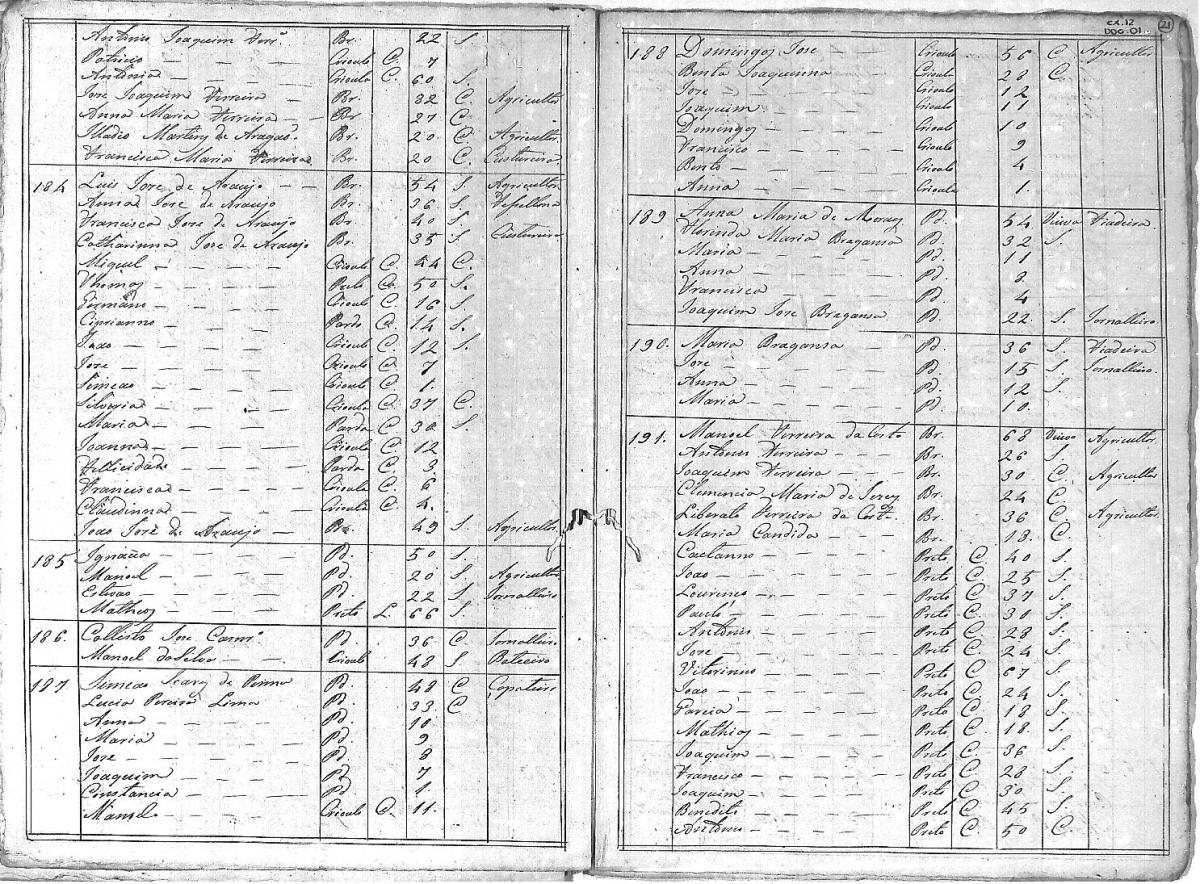 Antonio Joaquim Br. 22 S.
Patricio Crioulo C. 7
Antonia Crioula C. 60 S.
Jose Joaquim Ferreira Br. 32 C. Agricultor
Anna Maria Ferreira Br 27 C.
Martins de Aragao Br. 20 C. Agricultor
Francisca Maria Ferreira Br. 20 C. Custureira
184 Luis Jose de Araujo Br. 54 S. Agricultor
Anna Jose de Araujo Br. 36 S.
Francisca Jose de Araujo Br. 40 S.
Catharinna Jose de Araujo Br. 35 S. Custureira
Miguel Crioulo C. 44 C.
Thomas C. 50 S.
Germano Crioulo C. 16 S.
Ciprianno Pardo C. 14 S.
Joao Crioulo C. 12 S.
Jose Crioulo C. 7
Simeao Crioulo C. 1.
Silveria Crioula C. 37 C.
Maria Parda C. 30 S.
Joanna Crioula C. 12
Fellicidade Parda C. 3
Francisca Crioula C. 6
Claudinna Crioula C. 4.
Joao Jose de Araujo Br. 49 S. Agricultor
185 Ignacio Pd. 50 S.
Manoel Pd. 20 S. Agricultor
Estevao Pd. 22 S. Jornalleiro
Matheos Preto L. 66 S.
186. Callisto Jose Pd. 36 C. Jornalleiro
Manoel da Silva Crioulo 48 S.
187 Simeao de Pd. 48 C Capateiro
Lucia Pereira Lima Pd. 33 C
Anna Pd. 10
Maria Pd. 9
Jose Pd. 8
Joaquim Pd. 7
Constancia Pd 1.
Manoel Crioulo C. 11.
CX.12
DOC.01
21
188 Domingos Jose Crioulo 56 C. Agricultor
Benta Joaquinna Crioula 28 C.
Jose Crioulo 12
Joaquim Crioulo
Domingos Crioulo 10
Francisco Crioulo 9
Bento Crioulo 4
Anna Crioula 1.
189 Anna Maria de Moraes Pd. 54 Viuva Fiadeira
Florinda Maria Bragansa Pd. 32 S.
Maria Pd. 11
Anna Pd. 8
Francisca Pd. 4
Joaquim Jose Bragansa Pd. 22 S. Jornalleiro
190. Maria Bragansa Pd. 36 S. Fiadeira
Jose Pd. 15 S. Jornalleiro.
Anna Pd. 12 S.
Maria Pd. 10.
191. Manoel Ferreira da Costa Br. 68 Viuvo Agricultor
Antonio Ferreira Br. 26 S.
Joaquim Ferreira Br. 30 C. Agricultor
Clemencia Maria de Br. 24 C
Liberato Ferreira da Costa Br. 36 C Agricultor
Maria Candida Br. 18 C.
Caetanno Preto C. 40 S.
Joao Preto C. 25 S.
Lourenço Preto C. 37 S.
Paulo Preto C. 30 S.
Antonio Preto C. 28 S.
Jose Preto C. 24 S.
Vitorinno Preto C. 67 S.
Joao Preto C. 24 S.
Garcia Preto C. 18 S.
Mathias Preto C. 18 S.
Joaquim Preto C. 36 S
Francisco Preto C. 28 S.
Joaquim Preto C. 30 S.
Benedito Preto C. 45 S.
Antonio Preto C. 50 C.